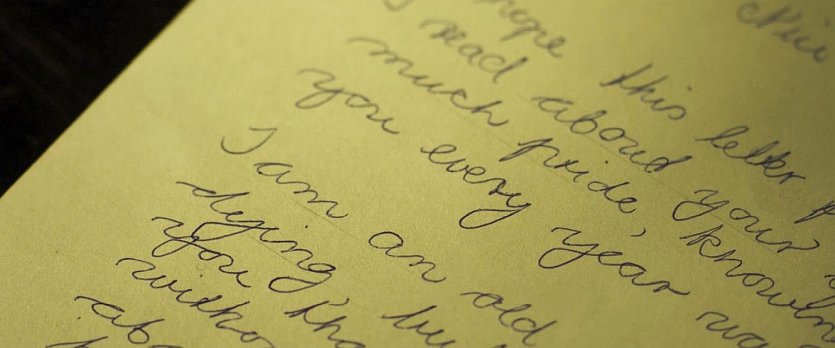 hope this letter
I read about your
much pride, knowin
you every year wa
I am an old
dying, bu
you tha
witho
abo